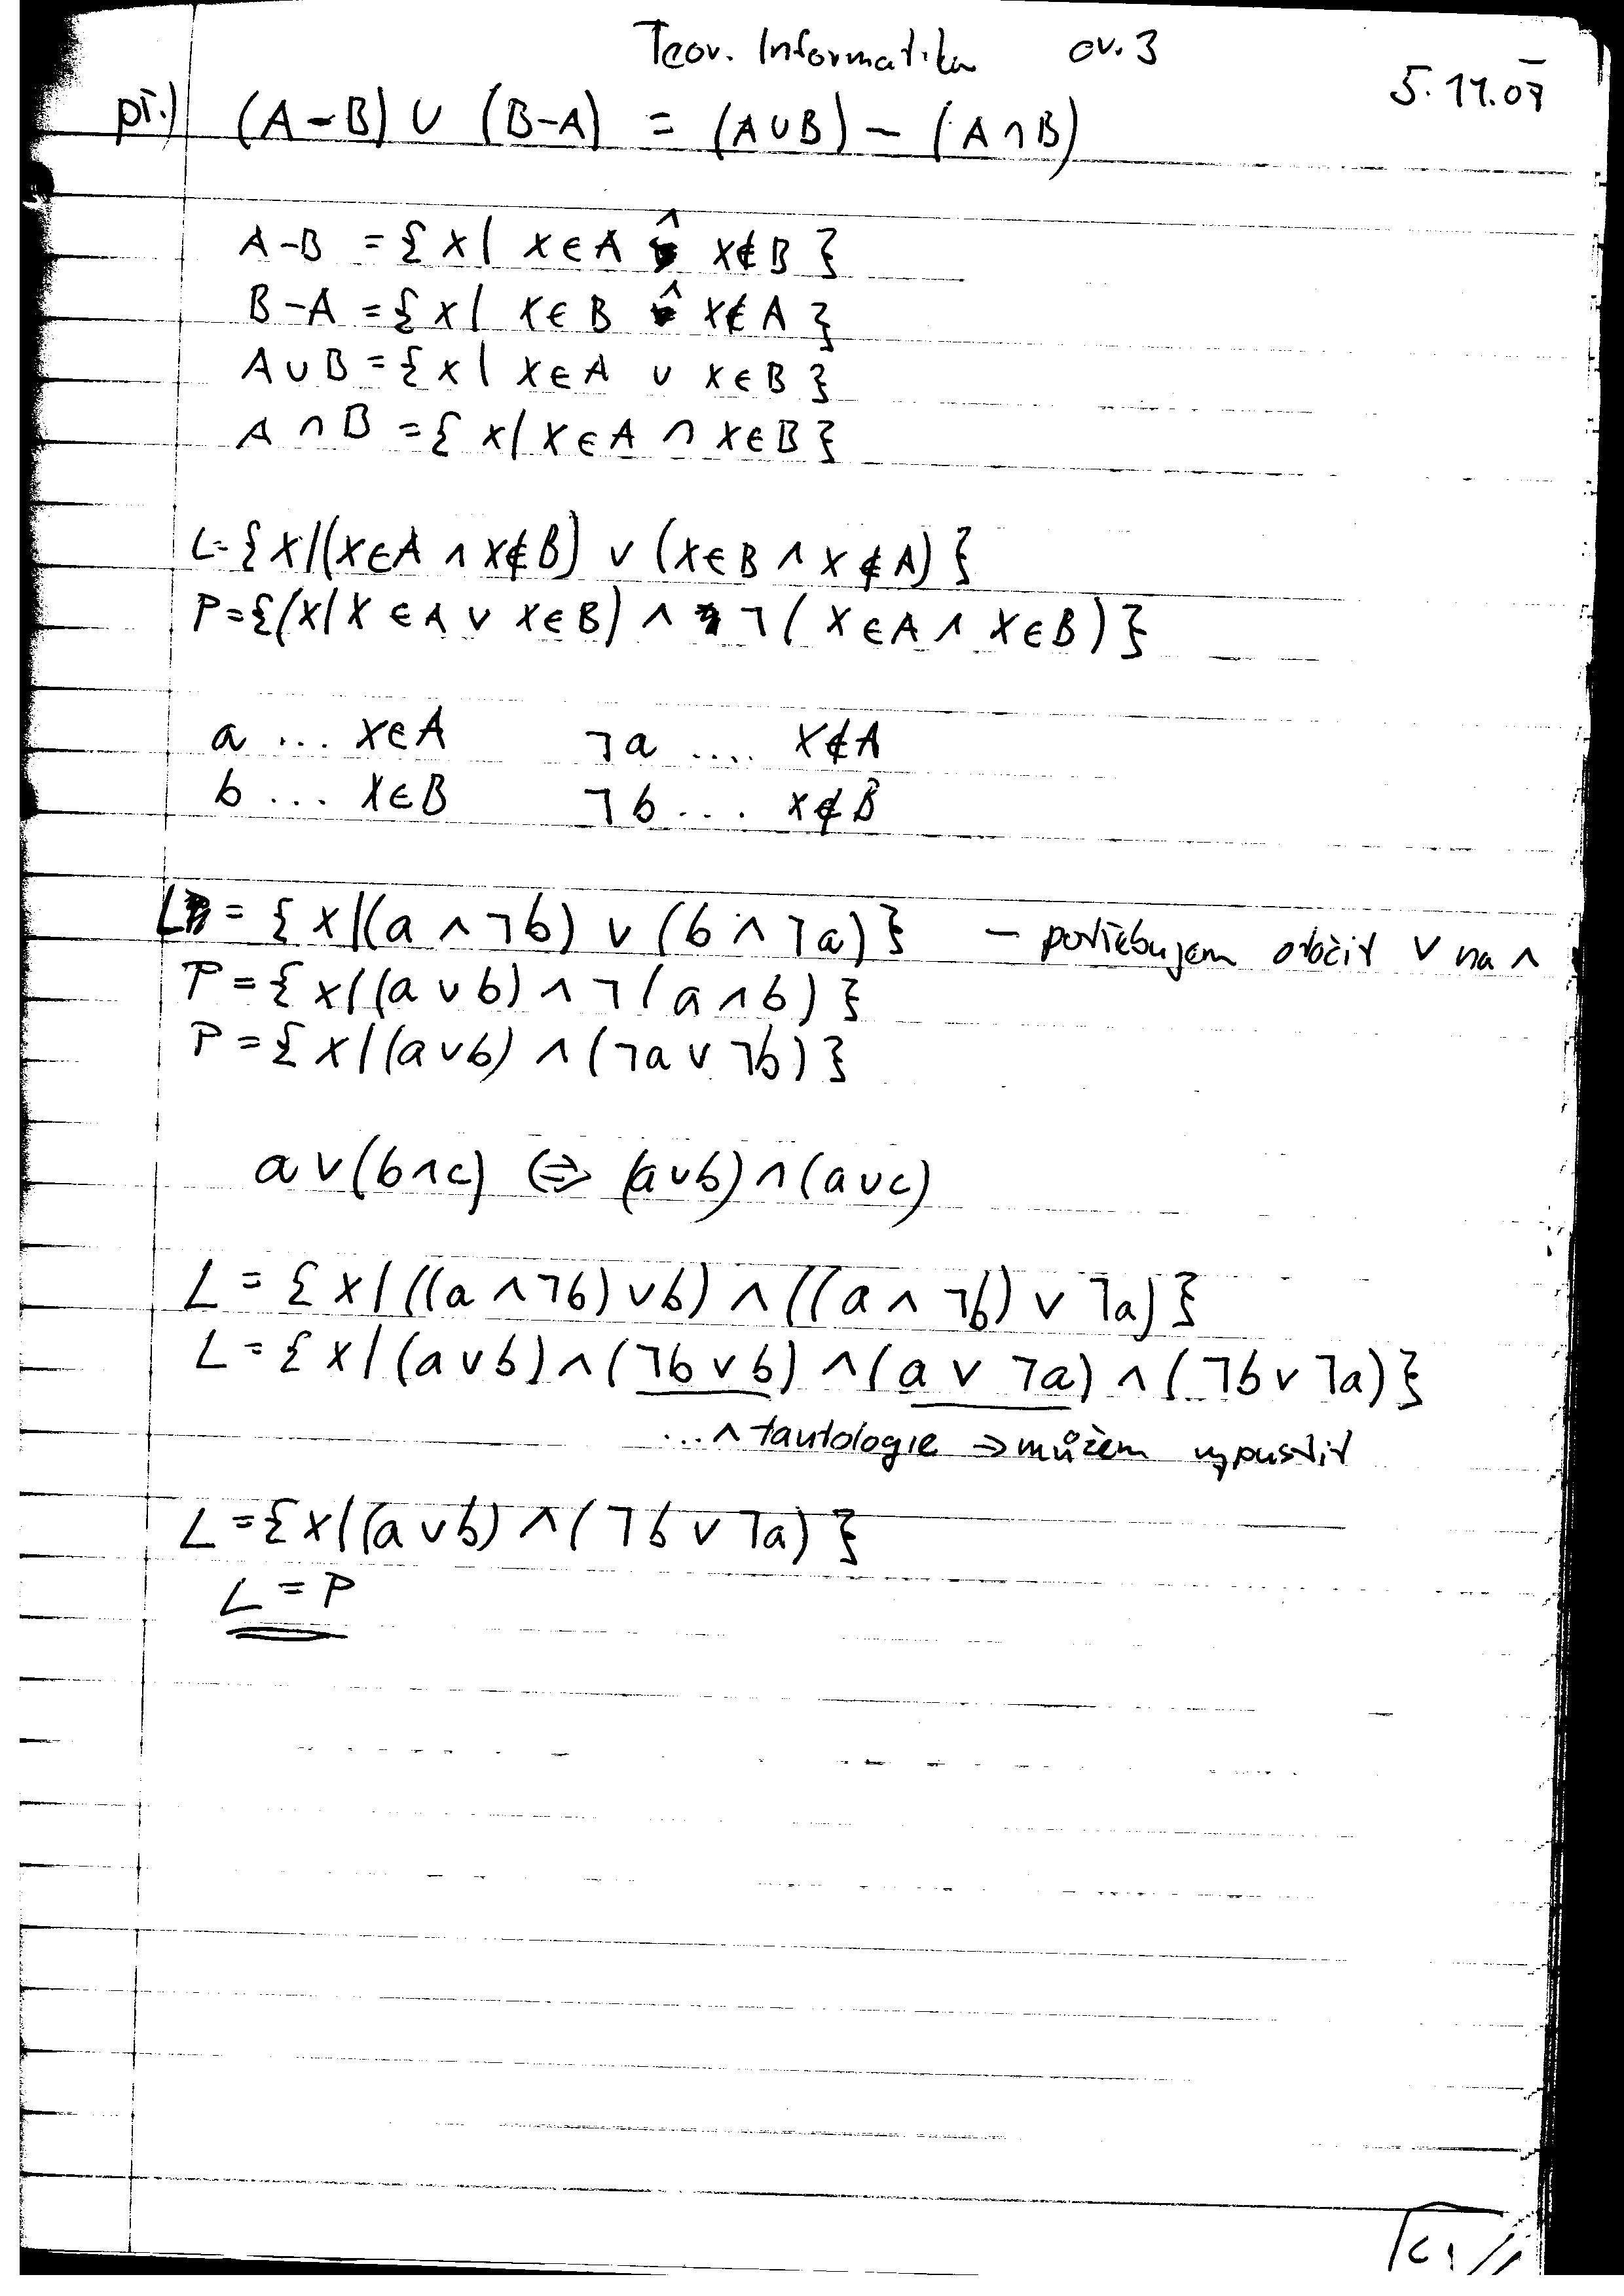 Teor. Informatika cv. 3
5.11.07
př.) (A-B) ∪ (B-A) = (A∪B) - (A∩B)
A-B = {x| x∈A ∧ x∉B}
B-A = {x| x∈B ∧ x∉A}
A∪B = {x| x∈A ∨ x∈B}
A∩B = {x| x∈A ∩ x∈B}
L={x|(x∈A ∧ x∉B) ∨ (x∈B ∧ x∉A)}
P={(x|x∈A ∨ x∈B) ∧ ¬(x∈A ∧ x∈B)}
a ... x∈A ¬a .... x∉A
b ... x∈B ¬b ... x∉B
L = {x|(a ∧ ¬b) ∨ (b ∧ ¬a)} - potřebujem otočit ∨ na ∧
P = {x|(a ∨ b) ∧ ¬(a ∧ b)}
P = {x|(a∨b) ∧ (¬a ∨ ¬b)}
a ∨ (b∧c) ⇔ (a∨b) ∧ (a∨c)
L = {x|((a ∧ ¬b) ∨ b) ∧ ((a ∧ ¬b) ∨ ¬a)}
L = {x|(a∨b) ∧ (¬b ∨ b) ∧ (a ∨ ¬a) ∧ (¬b ∨ ¬a)}
... ∧ tautologie ⇒ můžem vypustit
L = {x|(a∨b) ∧ (¬b ∨ ¬a)}
L = P